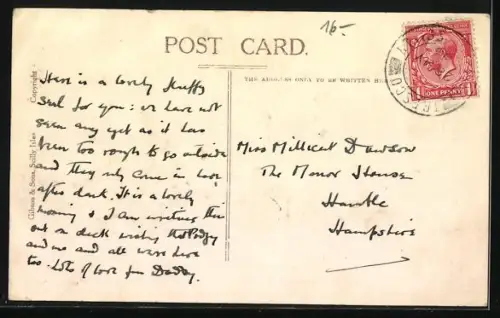 16-
POST CARD.
THE ADDRESS ONLY TO BE WRITTEN HE
Gibson & Sons, Scilly Isles Copyright
ONE PENNY
TRESCO
Here is a lovely fluffy
seal for you: we have not
seen any yet as it has
been too rough to go outside
and they only come in
after dark. It is a lovely
morning & I am writing this
out on deck wishing that
and me and all were here
too. Lots of love from Daddy.
Miss Millicent Dawson
The Manor House
Hamble
Hampshire